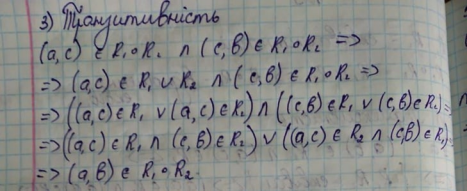 3) Транзитивність
(a,c) ∈ R₁∘R₂ ∧ (c,b) ∈ R₁∘R₂ =>
=> (a,c) ∈ R₁ ∪ R₂ ∧ (c,b) ∈ R₁∘R₂ =>
=> ((a,c)∈R₁ ∨ (a,c)∈R₂) ∧ ((c,b)∈R₁ ∨ (c,b)∈R₂) =>
=> ((a,c)∈R₁ ∧ (c,b)∈R₂) ∨ ((a,c)∈R₂ ∧ (c,b)∈R₁)
=> (a,b) ∈ R₁∘R₂